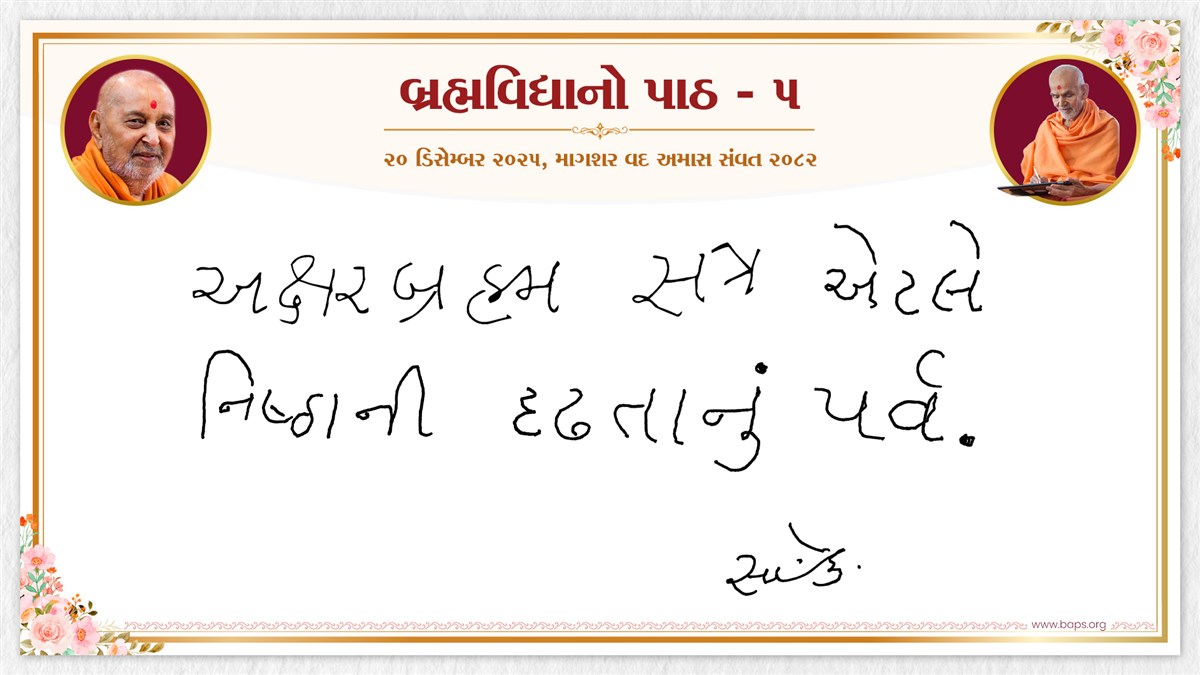 બ્રહ્મવિદ્યાનો પાઠ - ૫
૨૦ ડિસેમ્બર ૨૦૨૫, માગશર વદ અમાસ સંવત ૨૦૮૨
અક્ષરબ્રહ્મ સત્ર એટલે
નિષ્ઠાની દૃઢતાનું પર્વ.
www.baps.org